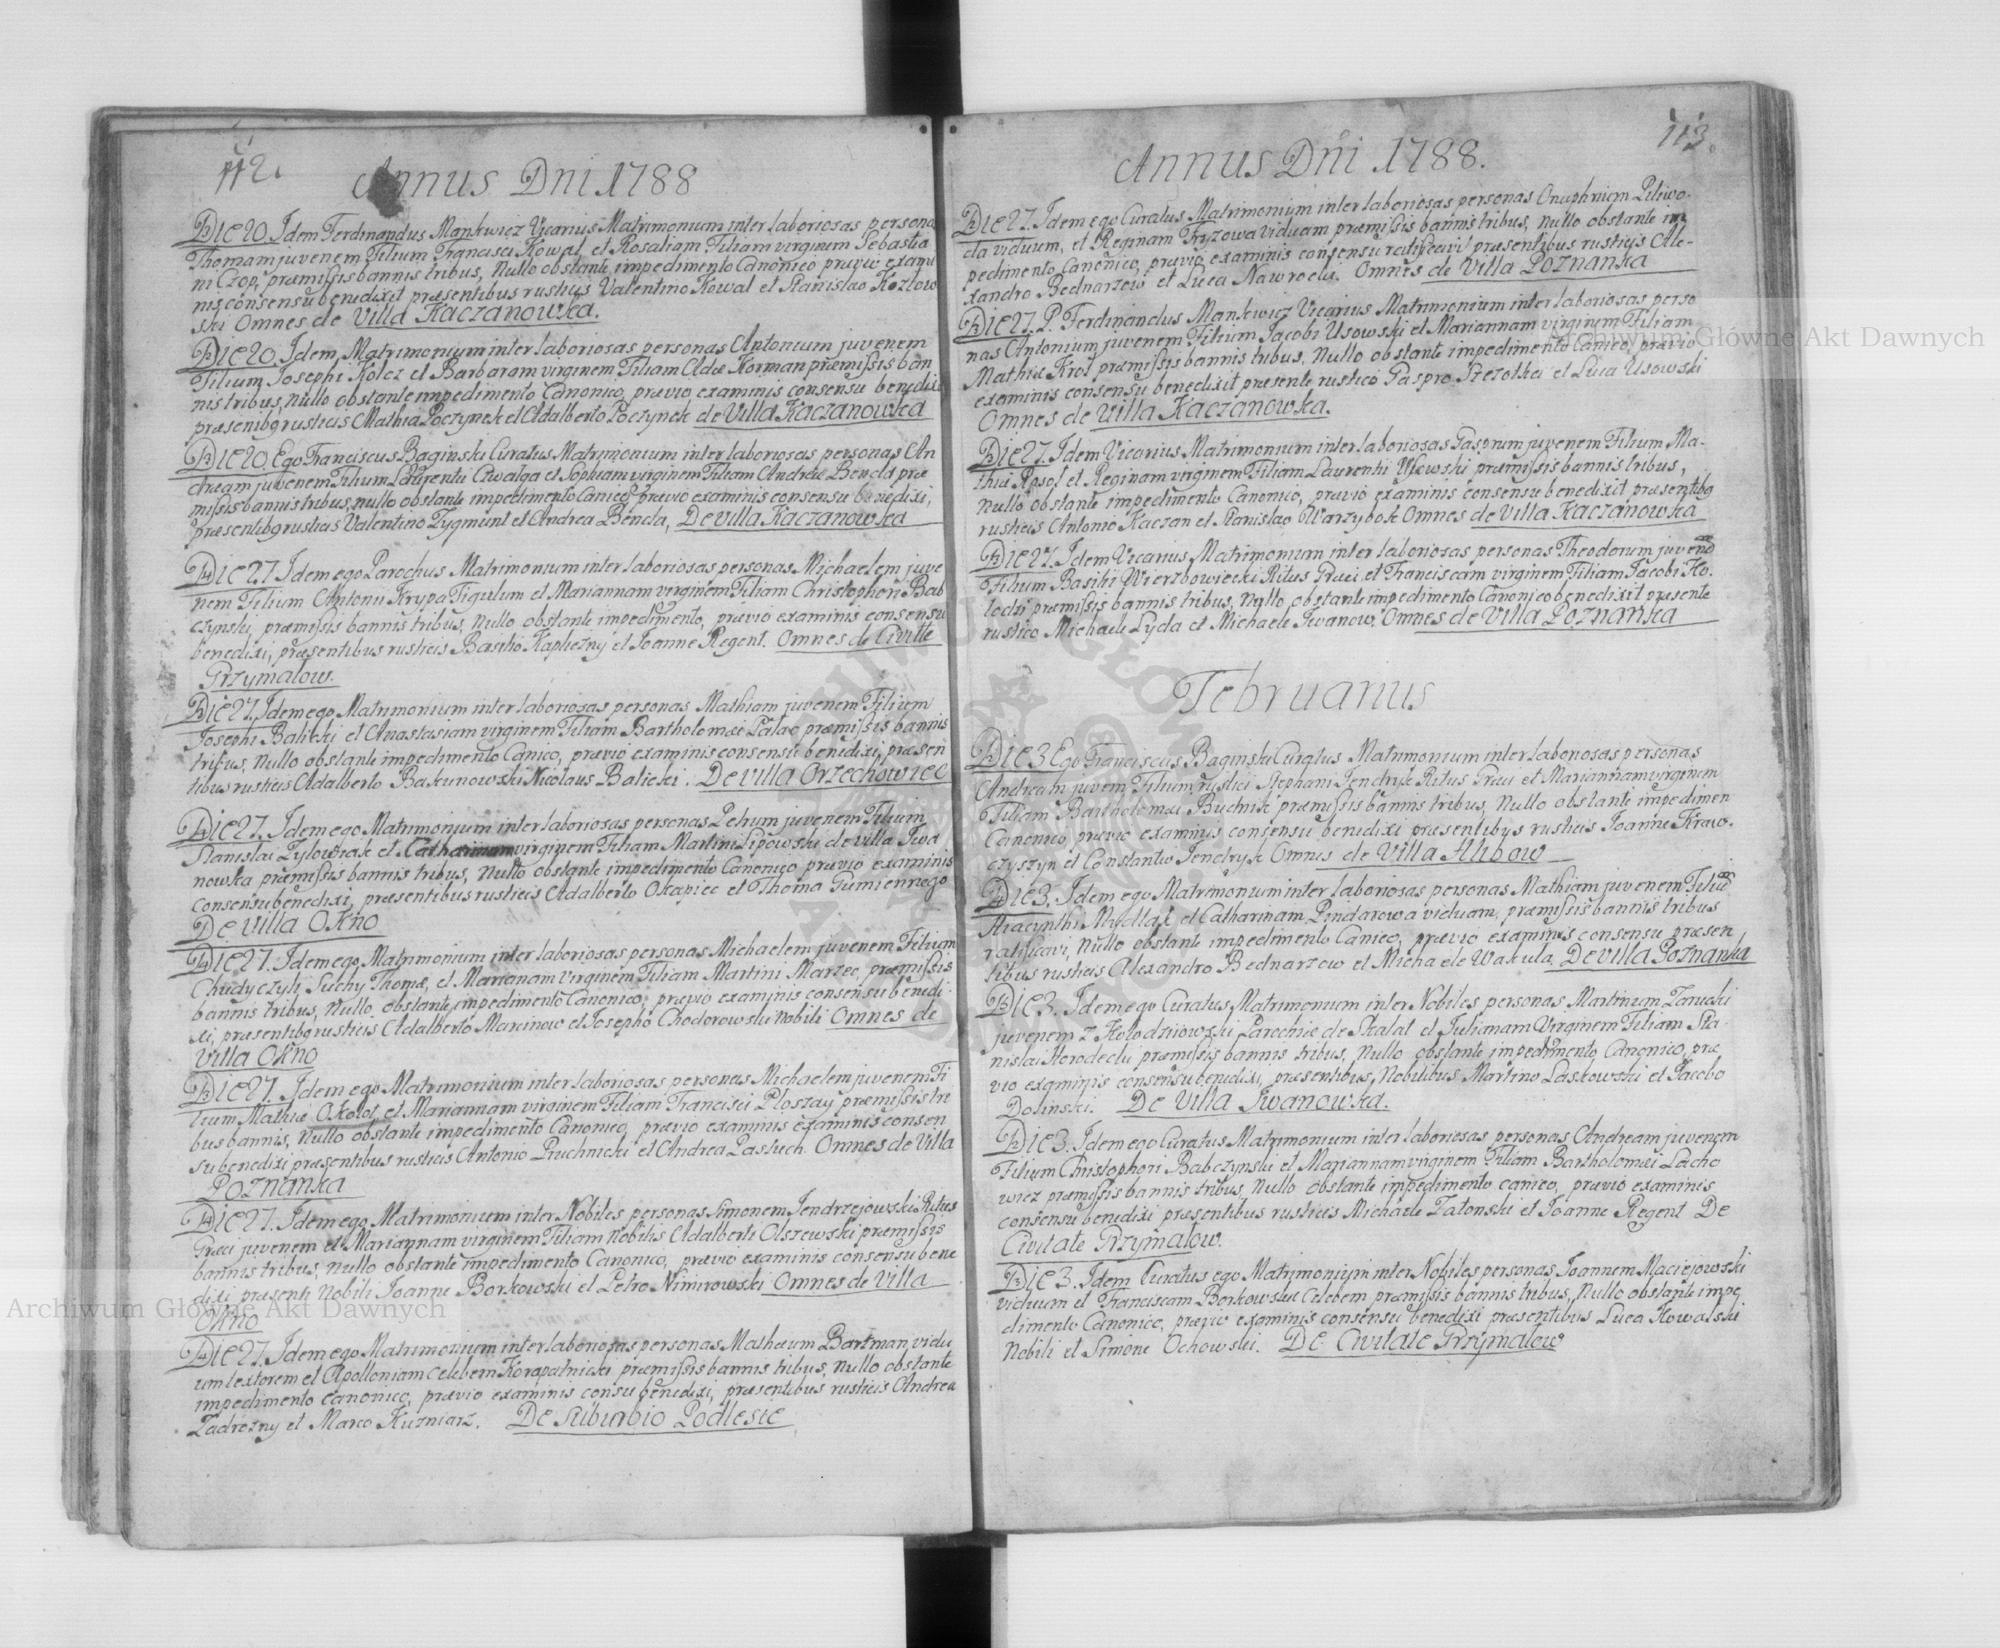 112.
Annus Dni 1788
Die 20. Idem Ferdinandus Mankwicz Vicarius Matrimonium inter laboriosas persona
Thomam juvenem Filium Francisci Kowal, et Rosaliam Filiam virginem Sebastia
ni Czop, præmissis bannis tribus, Nullo obstante impedimento Canonico prævio exami
nis consensu benedixit præsentibus rusticis Valentino Kowal et Stanislao Kozlow
ski Omnes de Villa Kaczanowka.
Die 20. Idem Matrimonium inter laboriosas personas Antonium juvenem
Filium Josephi Kolcz et Barbaram virginem Filiam Adæ Korman præmissis ban
nis tribus, Nullo obstante impedimento Canonico, prævio examinis consensu benedixi
præsentibg rusticis Mathia Poczynek et Adalberto Poczynek de Villa Kaczanowka
Die 20. Ego Franciscus Baginski Curatus Matrimonium inter laboriosas personas An
dream juvenem Filium Laurentii Cwalga et Sophiam virginem Filiam Andreæ Bencla præ
missis bannis tribus, nullo obstante impedimento Canico, prævio examinis consensu benedixi,
præsentibg rusticis Valentino Zygmunt et Andrea Bencla, De villa Kaczanowka
Die 27 Idem ego Parochus Matrimonium inter laboriosas personas Michaelem juve
nem Filium Antonii Krypa Figulum et Mariannam virginem Filiam Christophori Bab
czynski, præmissis bannis tribus, Nullo obstante impedimento, prævio examinis consensu
benedixi, præsentibus rusticis Basilio Kapliczny et Joanne Regent. Omnes de Civitte
Grzymalow.
Die 27. Idem ego Matrimonium inter laboriosas personas Mathiam juvenem Filium
Josephi Balicki et Anastasiam virginem Filiam Bartholomæi Palac præmissis bannis
tribus, Nullo obstante impedimento Canico, prævio examinis consensu benedixi, præsen
tibus rusticis Adalberto Bakunowski Nicolaus Balicki. De villa Orzechowiec
Die 27. Idem ego Matrimonium inter laboriosas personas Petrum juvenem Filium
Stanislai Tylowczak et Catharinam virginem Filiam Martini Lipowski de villa Iwa
nowka præmissis bannis tribus, Nullo obstante impedimento Canonico prævio examinis
consensu benedixi, præsentibus rusticis Adalberto Okapiec et Thoma Gumiennego
De Villa Okno
Die 27. Idem ego Matrimonium inter laboriosas personas Michaelem juvenem Filium
Chudyczyli Suchy Thomæ, et Mariannam virginem Filiam Martini Marzec, præmissis
bannis tribus, Nullo obstante impedimento Canonico, prævio examinis consensu benedi
xi, præsentibg rusticis Adalberto Marcinow et Josepho Chodorowski Nobili Omnes de
Villa Okno
Die 27. Idem ego Matrimonium inter laboriosas personas Michaelem juvenem Fi
lium Mathiæ Okolot et Mariannam virginem Filiam Francisci Ploszay præmissis tri
bus bannis, Nullo obstante impedimento Canonico, prævio examinis examinis consen
su benedixi præsentibus rusticis Antonio Piuchnicki et Andrea Pastuch Omnes de Villa
Poznanka
Die 27. Idem ego Matrimonium inter Nobiles personas Simonem Jendrzejowski Ritus
Græci juvenem et Mariannam virginem Filiam Nobilis Adalberti Olszewski præmissis
bannis tribus, Nullo obstante impedimento Canonico, prævio examinis consensu bene
dixi præsenti Nobili Joanne Borkowski et Petro Nimirowski Omnes de Villa
Okno
Die 27. Idem ego Matrimonium inter laboriosas personas Mathæum Bartman, vidu
um textorem et Apolloniam Celebem Korapatnicki præmissis bannis tribus, Nullo obstante
impedimento Canonico, prævio examinis consu benedixi, præsentibus rusticis Andrea
Zadrozny et Marco Kuzniarz. De Suburbio Podlesie
113.
Annus Dni 1788.
Die 27. Idem ego Curatus Matrimonium inter laboriosas personas Onuphrium Piliwo-
da viduum, et Reginam Fryzowa viduam præmissis bannis tribus, Nullo obstante im
pedimento Canonico, prævio examinis consensu ratificavi præsentibus rusticis Ale-
xandro Bednarzow et Luca Nawrocki. Omnes de Villa Poznanka
Die 27. P. Ferdinandus Mankwicz Vicarius Matrimonium inter laboriosas perso
nas Antonium juvenem Filium Jacobi Usowski et Mariannam virginem Filiam
Mathiæ Krol præmissis bannis tribus, Nullo obstante impedimento Canico, prævio
examinis consensu benedixit præsente rustico Gaspro Szezotka et Luca Usowski
Omnes de Villa Kaczanowka.
Die 27. Idem Vicarius Matrimonium inter laboriosas Gasprum juvenem Filium Ma-
thiæ Kpsol et Reginam virginem Filiam Laurentii Ulowski præmissis bannis tribus,
Nullo obstante impedimento Canonico, prævio examinis consensu benedixit præsentibg
rusticis Antonio Kaczan et Stanislao Warzybok Omnes de Villa Kaczanowka
Die 27. Idem Vicarius Matrimonium inter laboriosas personas Theodorum juvene
Filium Basilii Wierzbowiecki Ritus Græci et Franciscam virginem Filiam Jacobi Ko-
lodzi præmissis bannis tribus, Nullo obstante impedimento Canonico benedixit præsente
rustico Michaele Lyda et Michaele Iwanow. Omnes de Villa Poznanka
Februarius
Die 3 Ego Franciscus Baginski Curatus Matrimonium inter laboriosas personas
Andream juvem Filium, rustici Stephani Jendryk Ritus Græci et Mariannam virginem
Filiam Bartholomæi Budnik præmissis bannis tribus, Nullo obstante impedimen
Canonico, prævio examinis consensu benedixi præsentibus rusticis Joanne Kraw-
czyszyn et Constantio Jendryk Omnes de Villa Hlibow
Die 3. Idem ego Matrimonium inter laboriosas personas Mathiam juvenem Filiu
Hiacynthi Mydlak et Catharinam Pindarowa viduam, præmissis bannis tribus
ratificavi, Nullo obstante impedimento Canico, prævio examinis consensu præsen
tibus rusticis Alexandro Bednarzow et Michaele Wakula, De villa Poznanka
Die 3. Idem ego Curatus Matrimonium inter Nobiles personas Martinum Zarucki
juvenem z Kolodziowski Parochiæ de Skalat et Julianam Virginem Filiam Sta-
nislai Horodecki præmissis bannis tribus, Nullo obstante impedimento Canonico, præ
vio examinis consensu benedixi, præsentibus, Nobilibus Martino Laskowski et Jacobo
Dolinski. De Villa Iwanowka.
Die 3. Idem ego Curatus Matrimonium inter laboriosas personas Andream juvenem
Filium Christophori Babczynski et Mariannam virginem Filiam Bartholomæi Lacho
wicz præmissis bannis tribus, Nullo obstante impedimento canico, prævio examinis
consensu benedixi præsentibus rusticis Michaele Zatonski et Joanne Regent De
Civitate Grzymalow.
Die 3. Idem Curatus ego Matrimonium inter Nobiles personas Joannem Maciejowski
viduum et Franciscam Borkowski Celebem præmissis bannis tribus, Nullo obstante impe
dimento Canonico, prævio examinis consensu benedixi præsentibus Luca Kowalski
Nobili et Simone Ochowski. De Civitate Grzymalow
Archiwum Główne Akt Dawnych
Archiwum Główne Akt Dawnych